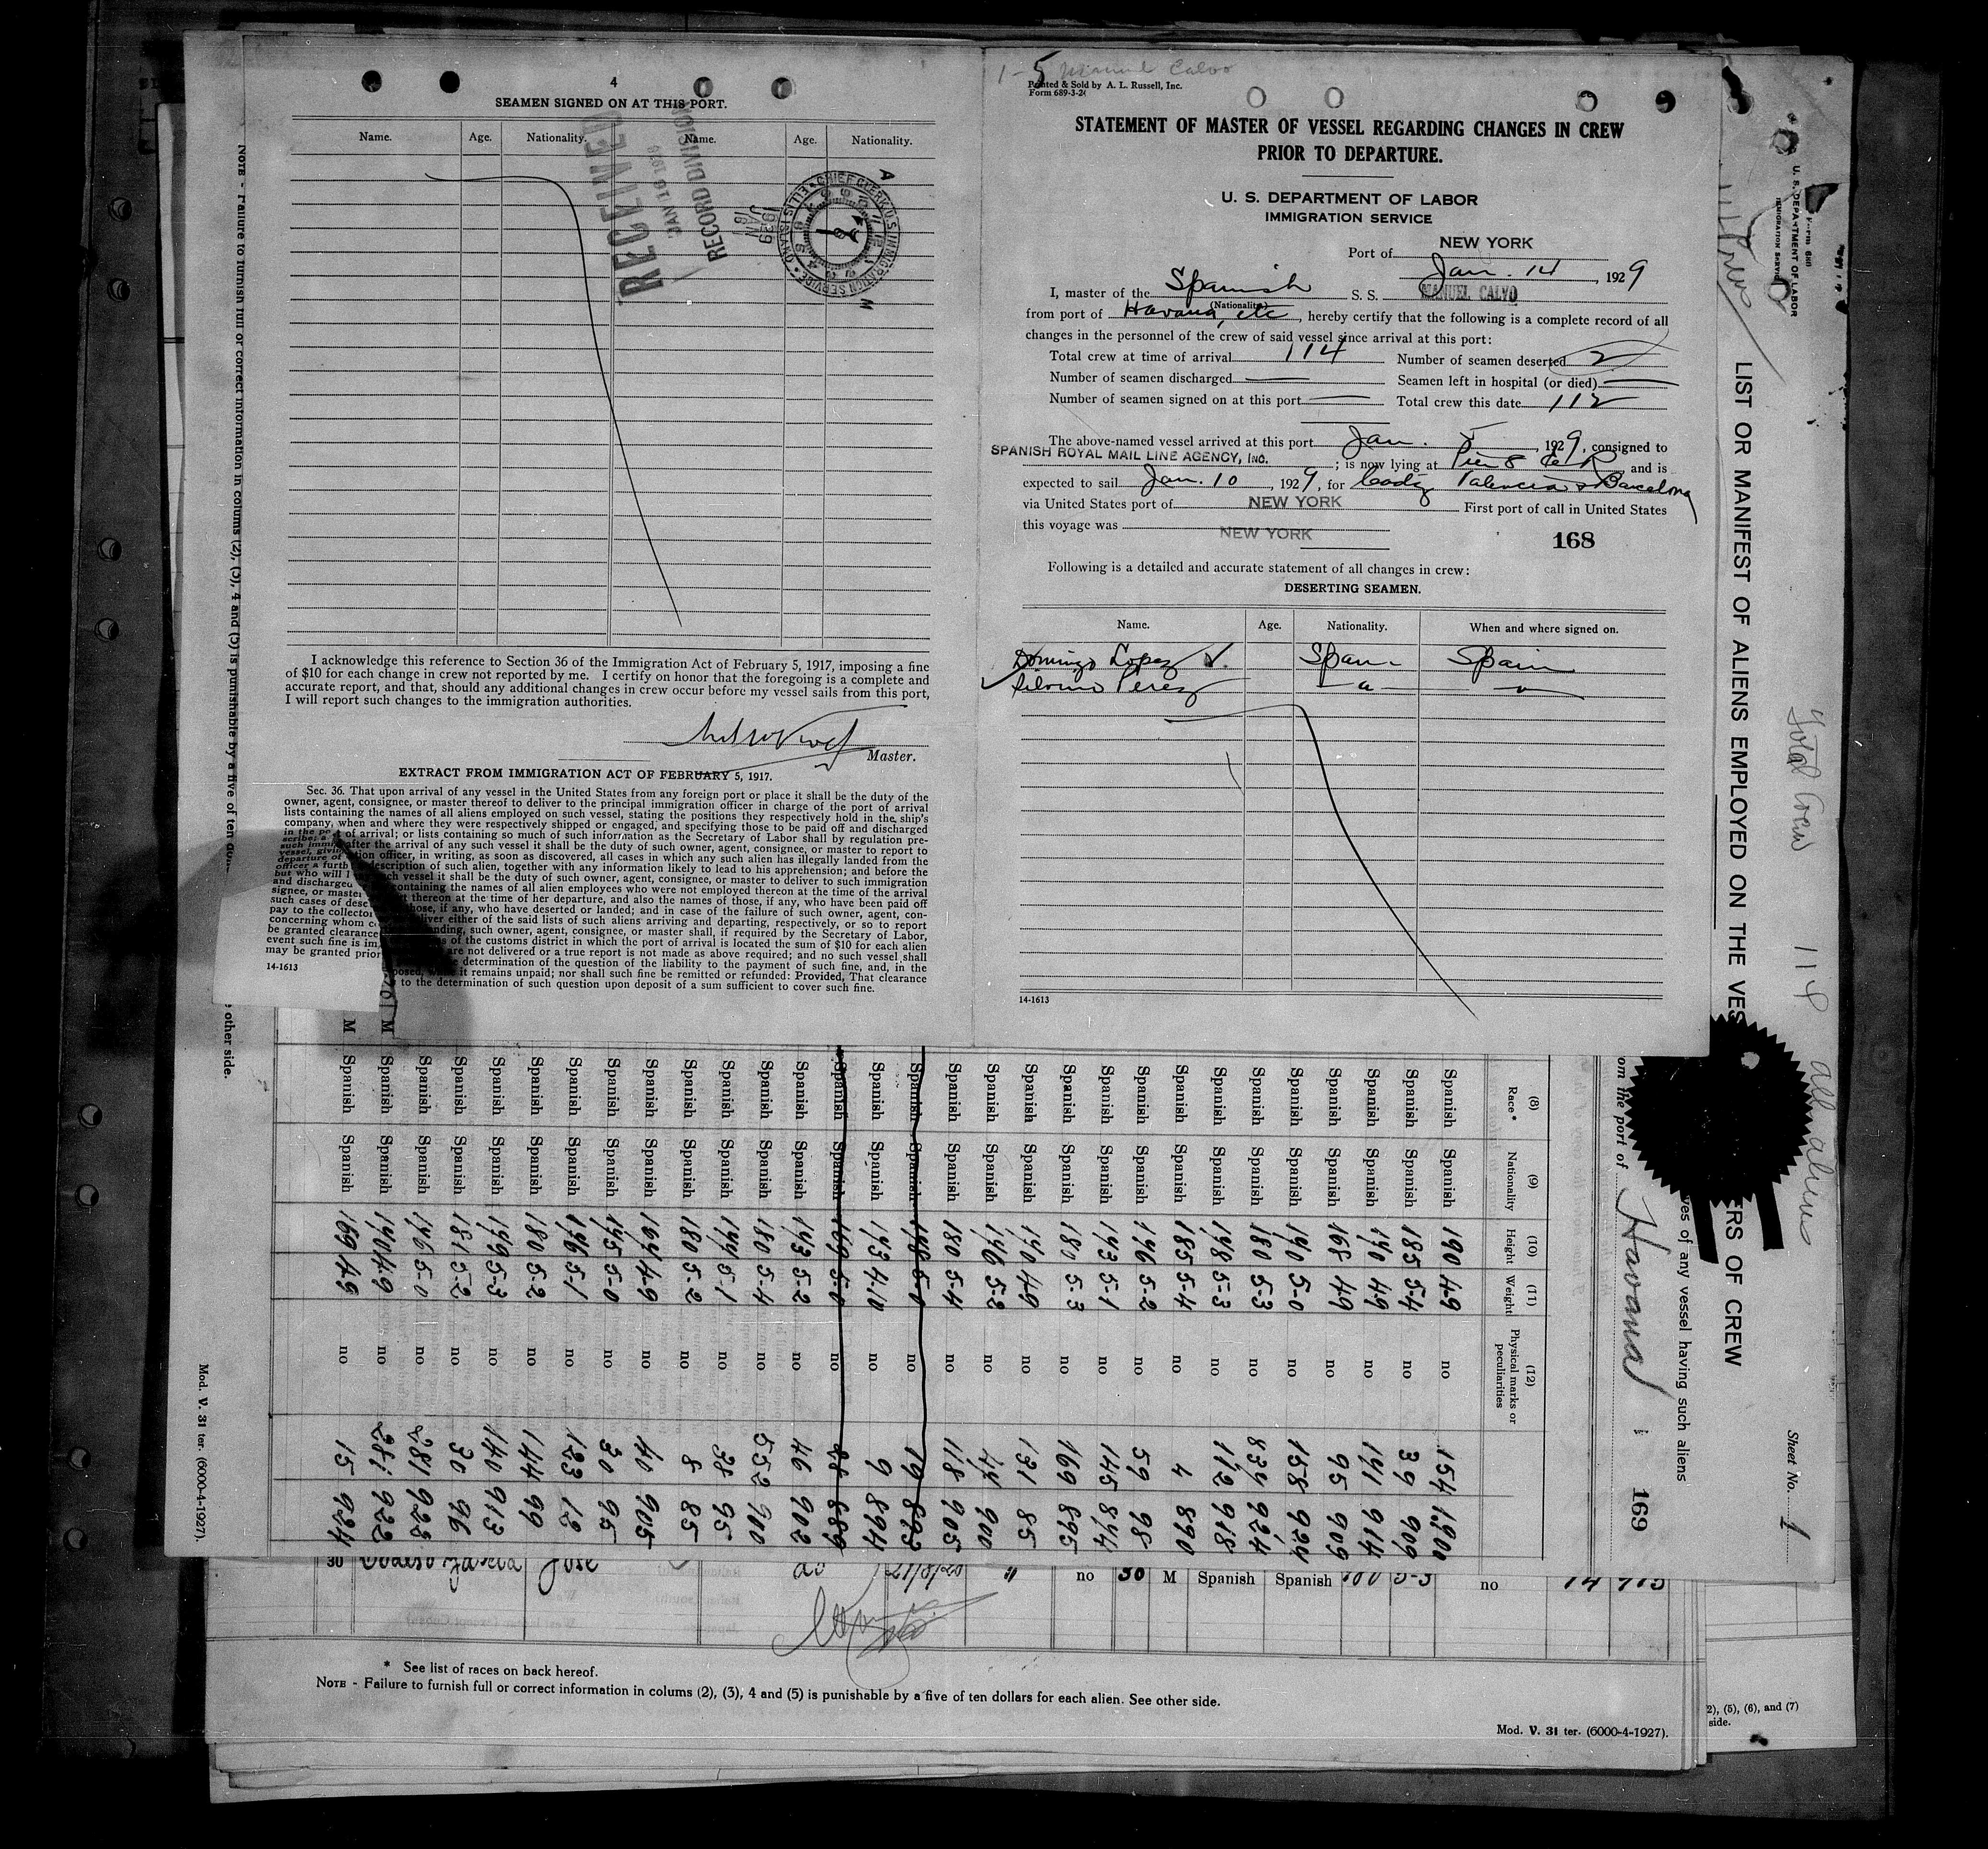 4
SEAMEN SIGNED ON AT THIS PORT.
Name. Age. Nationality. Name. Age. Nationality.
RECEIVED
JAN 16 1929
RECORD DIVISION
CHIEF CLERK U.S. IMMIGRATION SERVICE
ELLIS ISLAND
1929 JAN 16
A M
I acknowledge this reference to Section 36 of the Immigration Act of February 5, 1917, imposing a fine
of $10 for each change in crew not reported by me. I certify on honor that the foregoing is a complete and
accurate report, and that, should any additional changes in crew occur before my vessel sails from this port,
I will report such changes to the immigration authorities.
Master.
EXTRACT FROM IMMIGRATION ACT OF FEBRUARY 5, 1917.
Sec. 36. That upon arrival of any vessel in the United States from any foreign port or place it shall be the duty of the
owner, agent, consignee, or master thereof to deliver to the principal immigration officer in charge of the port of arrival
lists containing the names of all aliens employed on such vessel, stating the positions they respectively hold in the ship's
company, when and where they were respectively shipped or engaged, and specifying those to be paid off and discharged
in the po of arrival; or lists containing so much of such information as the Secretary of Labor shall by regulation pre-
scribe; a after the arrival of any such vessel it shall be the duty of such owner, agent, consignee, or master to report to
such immi tion officer, in writing, as soon as discovered, all cases in which any such alien has illegally landed from the
vessel, givin description of such alien, together with any information likely to lead to his apprehension; and before the
departure of ch vessel it shall be the duty of such owner, agent, consignee, or master to deliver to such immigration
officer a furth containing the names of all alien employees who were not employed thereon at the time of the arrival
but who will t thereon at the time of her departure, and also the names of those, if any, who have been paid off
and discharged those, if any, who have deserted or landed; and in case of the failure of such owner, agent, con-
signee, or master liver either of the said lists of such aliens arriving and departing, respectively, or so to report
such cases of dese nding, such owner, agent, consignee, or master shall, if required by the Secretary of Labor,
pay to the collector s of the customs district in which the port of arrival is located the sum of $10 for each alien
concerning whom c are not delivered or a true report is not made as above required; and no such vessel shall
be granted clearance determination of the question of the liability to the payment of such fine, and, in the
event such fine is im posed, it remains unpaid; nor shall such fine be remitted or refunded: Provided, That clearance
may be granted prior to the determination of such question upon deposit of a sum sufficient to cover such fine.
14-1613
1-5 Manuel Calvo
Printed & Sold by A. L. Russell, Inc.
Form 689-3-2
STATEMENT OF MASTER OF VESSEL REGARDING CHANGES IN CREW
PRIOR TO DEPARTURE.
U. S. DEPARTMENT OF LABOR
IMMIGRATION SERVICE
Port of NEW YORK
Jan. 14, 1929
I, master of the Spanish S. S. MANUEL CALVO
(Nationality)
from port of Havana, etc, hereby certify that the following is a complete record of all
changes in the personnel of the crew of said vessel since arrival at this port:
Total crew at time of arrival 114 Number of seamen deserted 2
Number of seamen discharged — Seamen left in hospital (or died) —
Number of seamen signed on at this port — Total crew this date 112
The above-named vessel arrived at this port Jan. 5, 1929, consigned to
SPANISH ROYAL MAIL LINE AGENCY, INC.; is now lying at Pier 8 E R, and is
expected to sail Jan. 10, 1929, for Cadiz Valencia & Barcelona
via United States port of NEW YORK First port of call in United States
this voyage was NEW YORK
168
Following is a detailed and accurate statement of all changes in crew:
DESERTING SEAMEN.
Name. Age. Nationality. When and where signed on.
Domingo Lopez Span. Spain
Perez — " — "
14-1613
NOTE - Failure to furnish full or correct information in colums (2), (3), 4 and (5) is punishable by a five of ten do
other side.
Mod. V. 31 ter. (6000-4-1927).
U. S. DEPARTMENT OF LABOR
IMMIGRATION SERVICE
LIST OR MANIFEST OF ALIENS EMPLOYED ON THE VES
ERS OF CREW
Total Crew 114 all aliens
ves of any vessel having such aliens
om the port of Havana
169
Sheet No. 1
(8) Race* (9) Nationality (10) Height (11) Weight (12) Physical marks or peculiarities
Spanish Spanish 190 4-9 no 154 1,900
Spanish Spanish 185 5-4 no 39 909
Spanish Spanish 170 4-9 no 141 914
Spanish Spanish 168 4-9 no 95 909
Spanish Spanish 170 5-0 no 158 924
Spanish Spanish 180 5-3 no 834 924
Spanish Spanish 178 5-3 no 112 918
Spanish Spanish 185 5-4 no 4 890
Spanish Spanish 176 5-2 no 59 98
Spanish Spanish 173 5-1 no 145 874
Spanish Spanish 180 5-3 no 169 895
Spanish Spanish 170 4-9 no 131 85
Spanish Spanish 176 5-2 no 44 900
Spanish Spanish 180 5-4 no 118 905
Spanish Spanish 178 5-0 no 19 893
Spanish Spanish 173 4-10 no 9 894
Spanish Spanish 169 5-0 no 28 889
Spanish Spanish 173 5-2 no 46 902
Spanish Spanish 180 5-4 no 552 900
Spanish Spanish 174 5-1 no 38 95
Spanish Spanish 180 5-2 no 8 85
Spanish Spanish 164 4-9 no 40 905
Spanish Spanish 175 5-0 no 30 95
Spanish Spanish 176 5-1 no 123 12
Spanish Spanish 180 5-2 no 144 99
Spanish Spanish 179 5-3 no 140 913
Spanish Spanish 181 5-2 no 30 96
Spanish Spanish 176 5-0 no 281 925
M Spanish Spanish 170 4-9 no 281 922
M Spanish Spanish 169 4-9 no 15 924
30 Garcia Jose do 21/8/20 " no 30 M Spanish Spanish 180 5-3 no 14 915
* See list of races on back hereof.
NOTE - Failure to furnish full or correct information in colums (2), (3), 4 and (5) is punishable by a five of ten dollars for each alien. See other side.
Mod. V. 31 ter. (6000-4-1927).
2), (5), (6), and (7)
side.